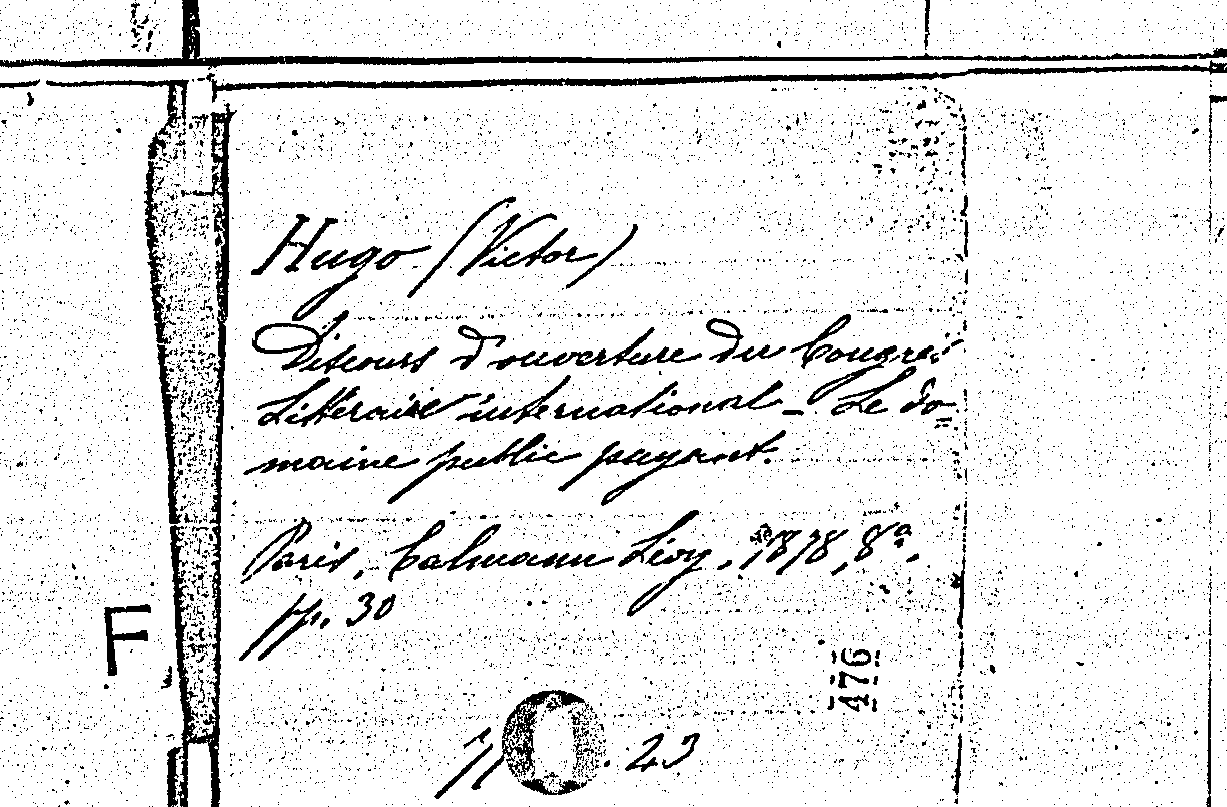 Hugo (Victor)
Discours d'ouverture du Congrès
Littéraire international - Le do=
maine public payant.
Paris, Calmann Lévy, 1878, 8º.
pp. 30
F
476
. 23